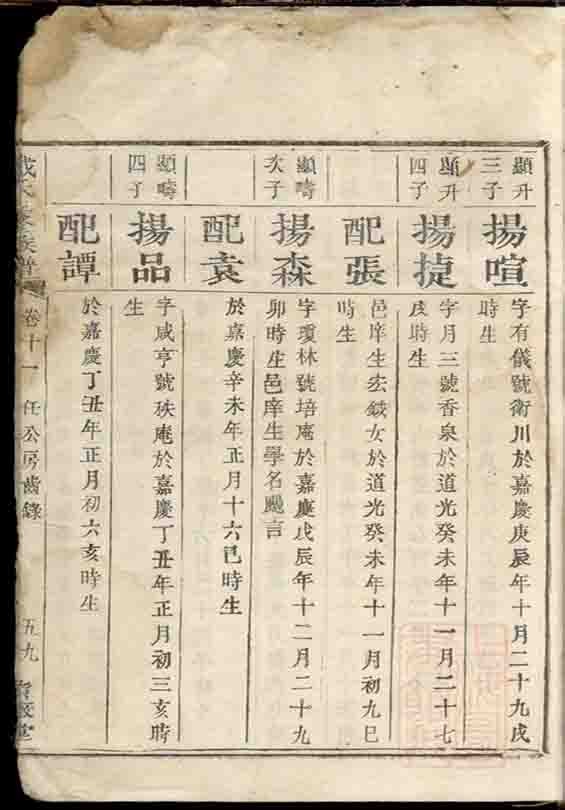 顯升
三子
揚暄
字有儀號衛川於嘉慶庚辰年十月二十九戌
時生
顯升
四子
揚捷
字月三號香泉於道光癸未年十一月二十七
戌時生
配張
邑庠生宏鉞女於道光癸未年十一月初九巳
時生
顯疇
次子
揚森
字瓊林號培庵於嘉慶戊辰年十二月二十九
卯時生邑庠生學名颺言
配袁
於嘉慶辛未年正月十六巳時生
顯疇
四子
揚品
字咸亨號秩庵於嘉慶丁丑年正月初三亥時
生
配譚
於嘉慶丁丑年正月初六亥時生
氏家族譜
卷十一
任公房齒錄
五九
堂